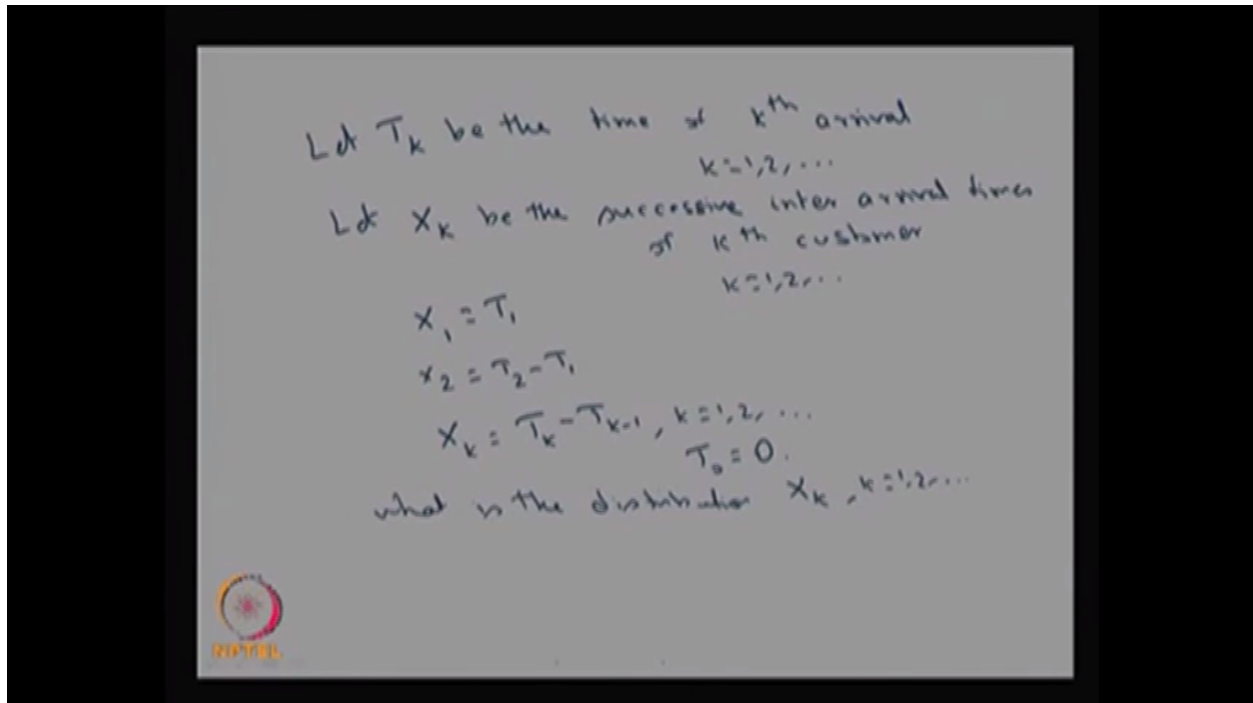 Let T_k be the time of k^th arrival
k = 1, 2, ...
Let X_k be the successive inter arrival times
of k^th customer
k = 1, 2, ...
X_1 = T_1
X_2 = T_2 - T_1
X_k = T_k - T_k-1, k = 1, 2, ...
T_0 = 0.
what is the distribution X_k, k = 1, 2, ...
NPTEL